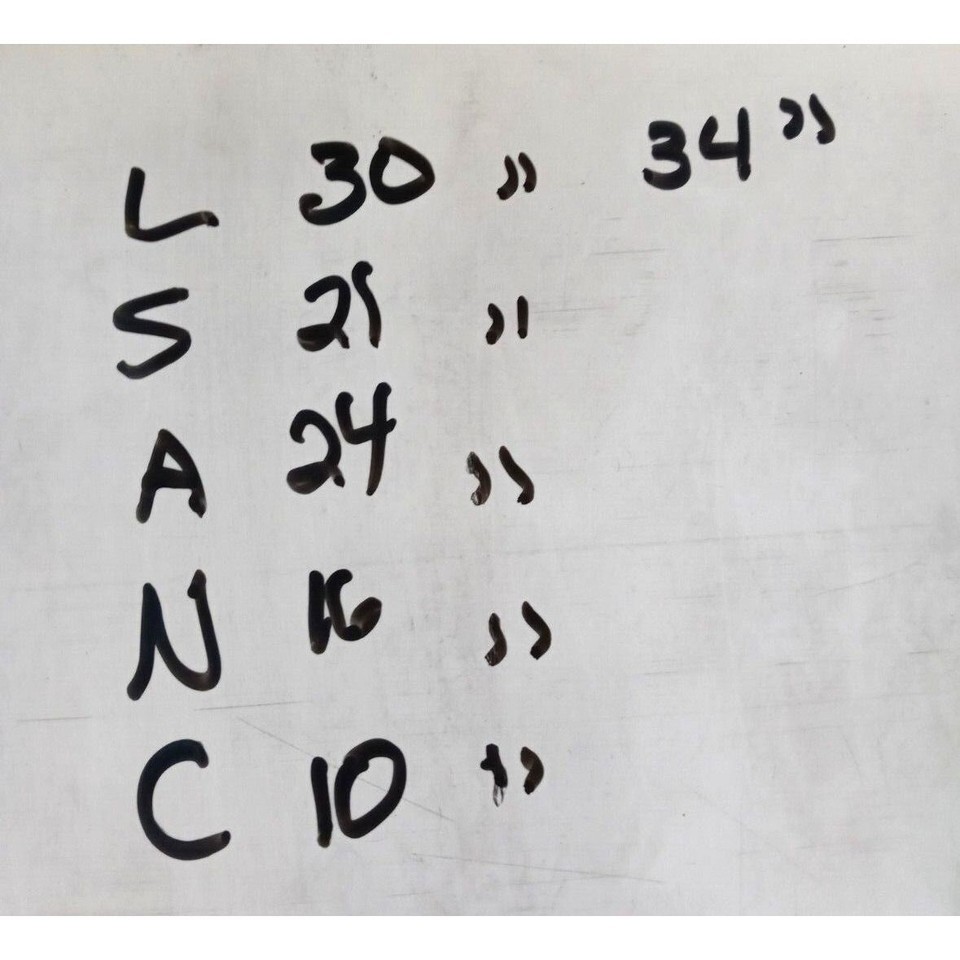 L 30 " 34"
S 21 "
A 24 "
N 16 "
C 10 "